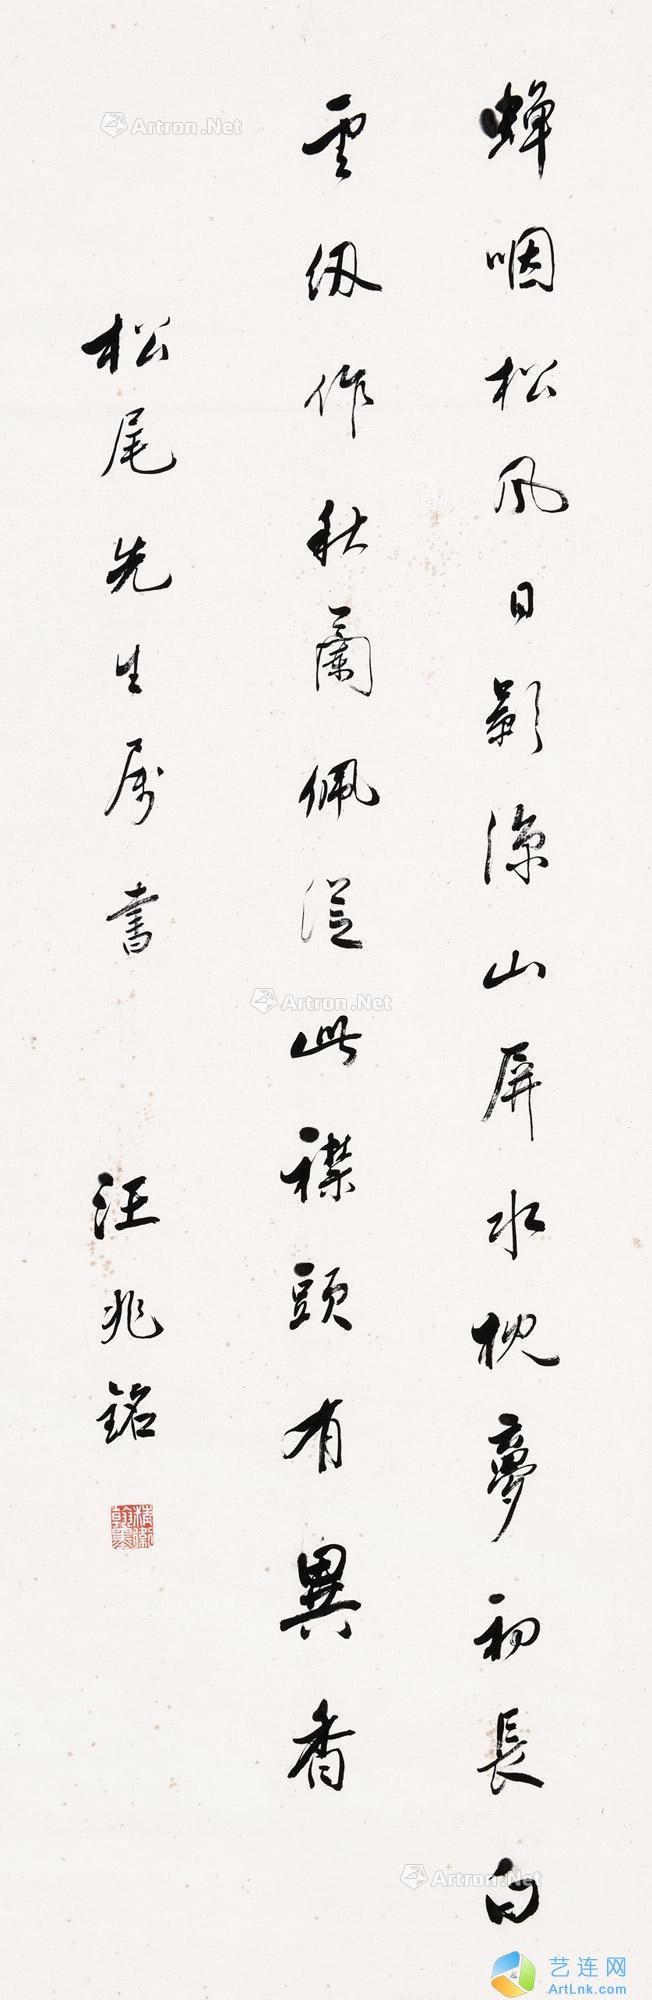 蟬咽松風日影涼山屏水枕夢初長白
雲紉作秋蘭佩從此襟頭有異香
松尾先生属書 汪兆銘
Artron.Net
Artron.Net
Artron.Net
艺连网
ArtLnk.com